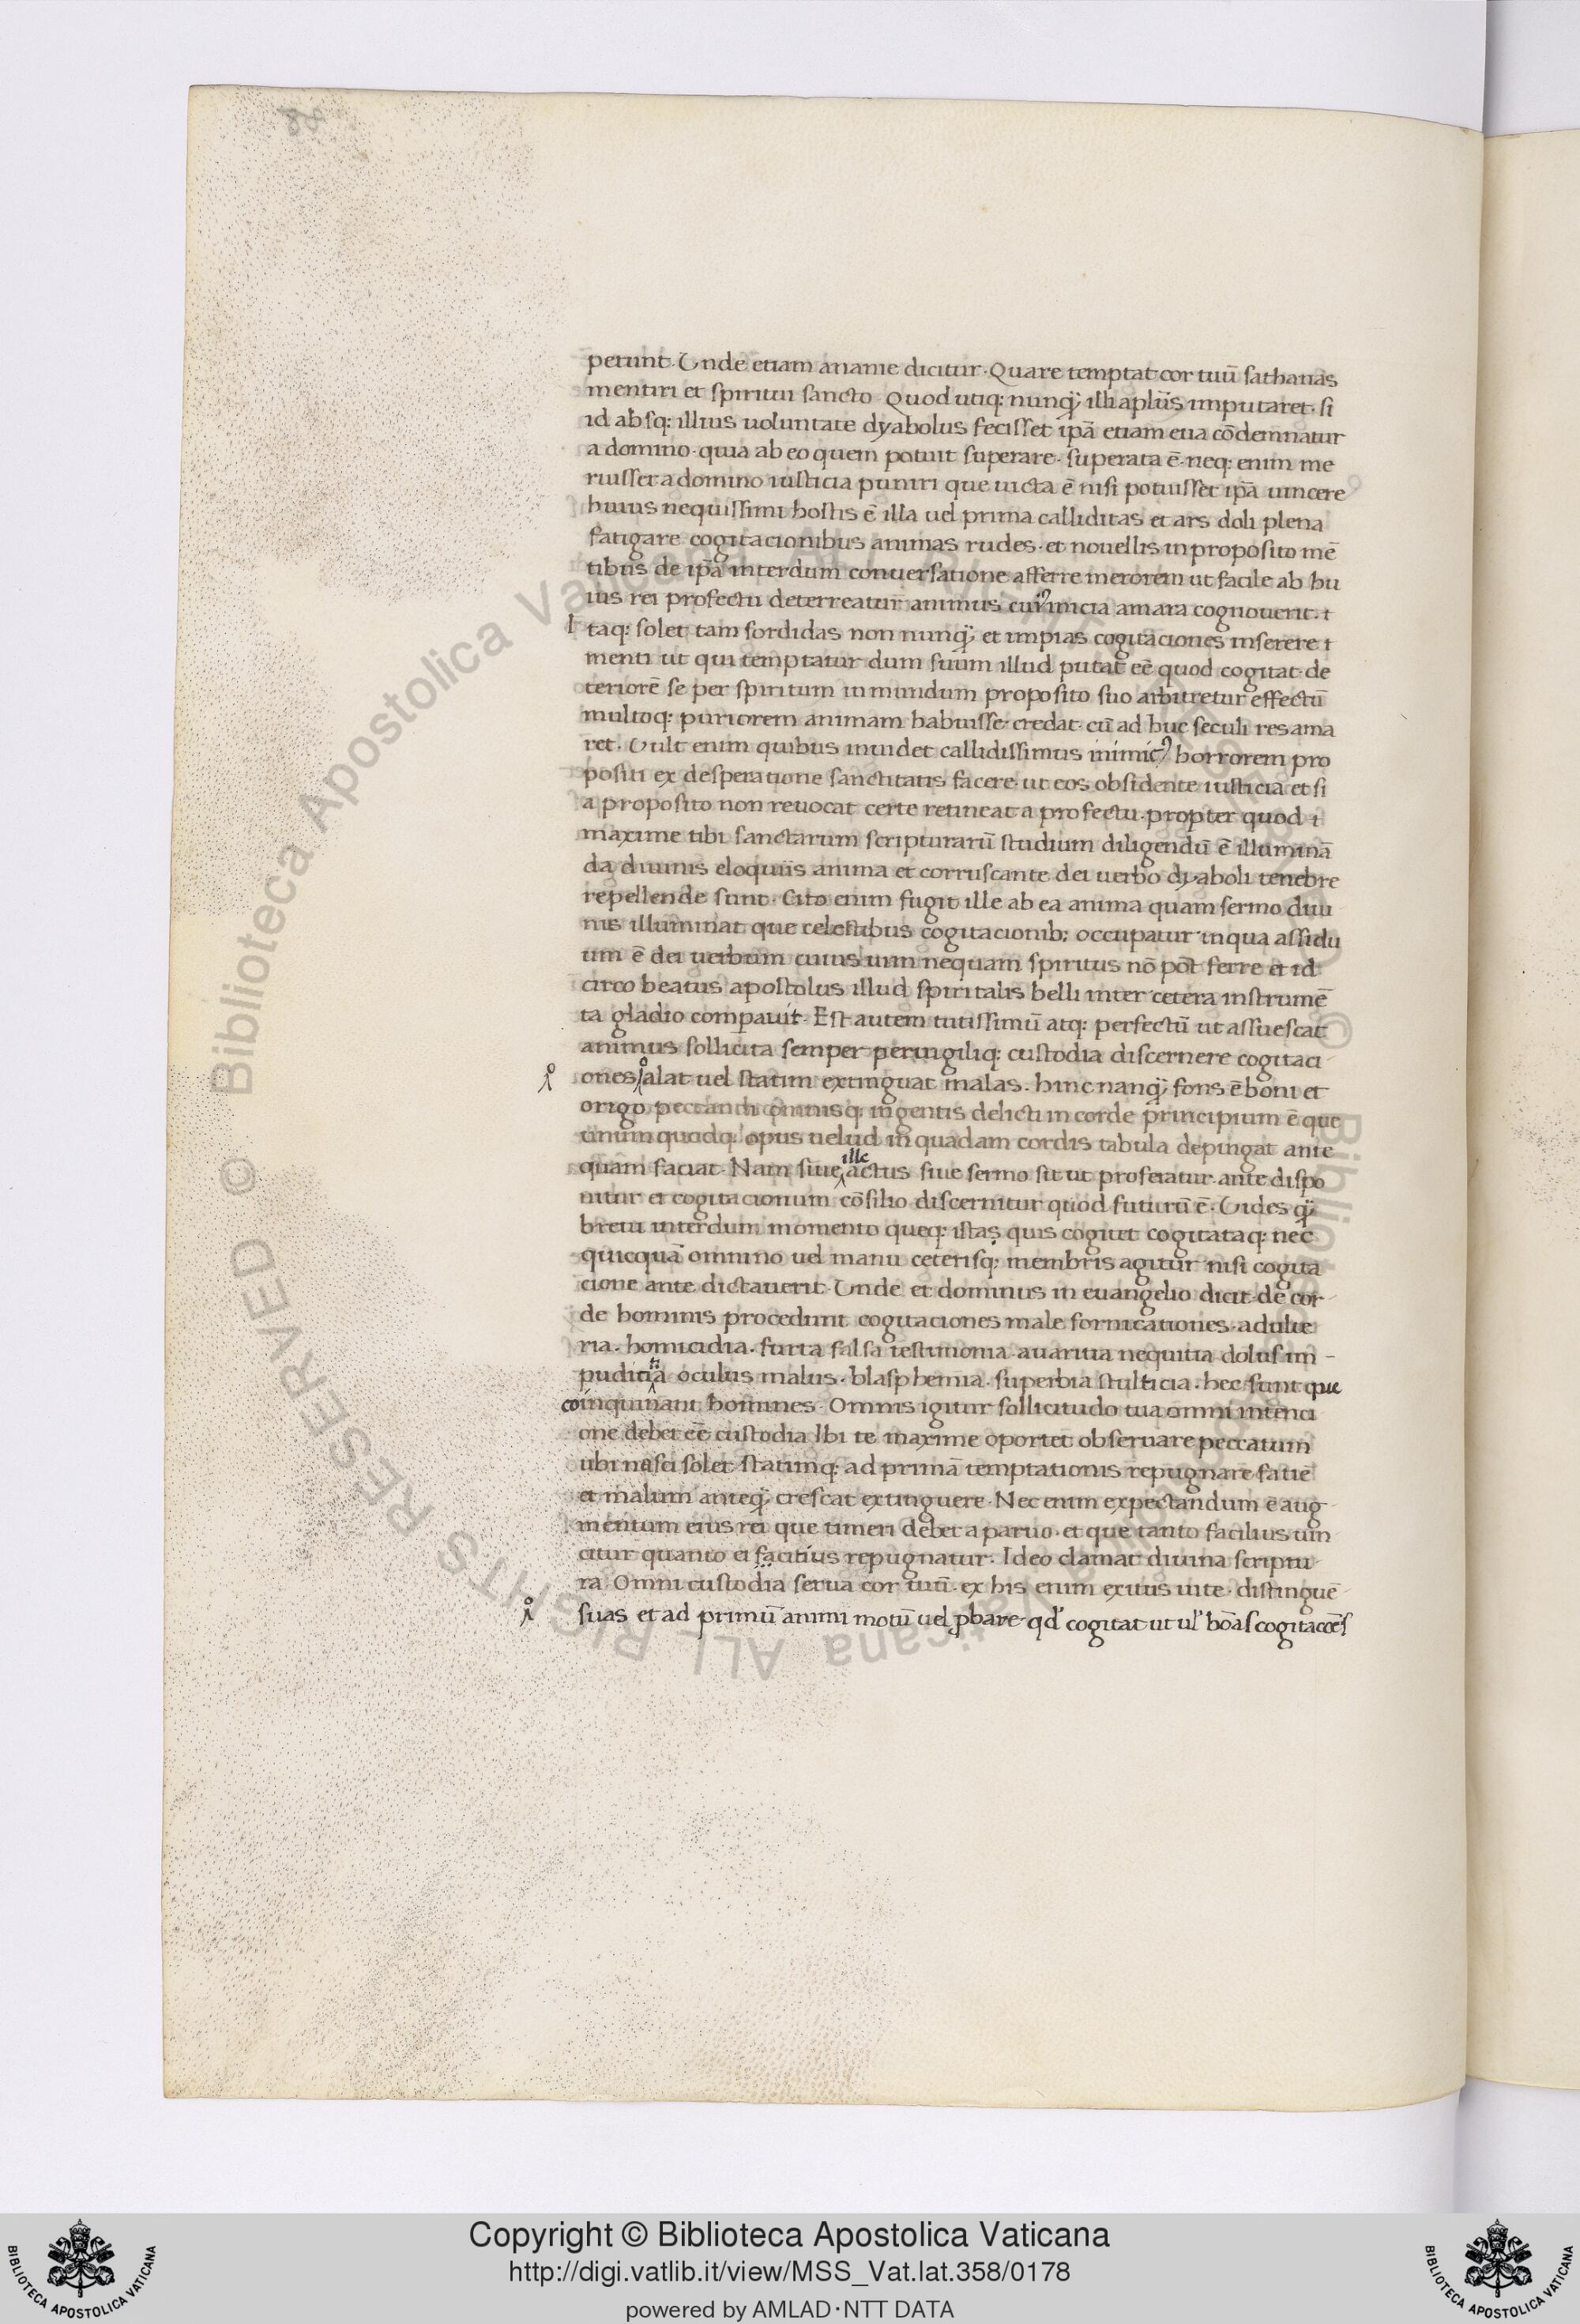 petunt. Unde etiam ananie dicitur. Quare temptat cor tuū sathanas
mentiri et spiritui sancto. Quod utiq; nunqȝ illi aplūs imputaret. si
id absq; illius uoluntate dyabolus fecisset ipā etiam eua cōdemnatur
a domino. quia ab eo quem potuit superare. superata ē. neq; enim me
ruisset a domino iusticia puniri que uicta ē nisi potuisset ipā uincere
huius nequissimi hostis ē illa uel prima calliditas et ars doli plena
fatigare cogitacionibus animas rudes. et nouellis in proposito mē
tibus de ipā interdum conuersatione afferre merorem ut facile ab hu
ius rei profectu deterreatur animus cuiꝰ inicia amara cognouerit. i
taq; solet tam sordidas non nunqȝ et impias cogitaciones inserere i
menti ut qui temptatur dum suum illud putat eē quod cogitat. de
teriorē se per spiritum inmundum proposito suo arbitretur effectū
multoq; puriorem animam habuisse credat. cū ad huc seculi res ama
ret. Uult enim quibus inuidet callidissimus inimicꝰ horrorem pro
positi ex desperatione sanctitatis facere. ut eos obsidente iusticia et si
a proposito non reuocat certe retineat a profectu. propter quod i
maxime tibi sanctarum scripturarū studium diligendū ē illuminā
da diuinis eloquiis anima et corruscante dei uerbo dyaboli tenebre
repellende sunt. Cito enim fugit ille ab ea anima quam sermo diui
nis illuminat que celestibus cogitacionib; occupatur in qua assidu
um ē dei uerbum cuius uim nequam spiritus nō pōt ferre et id
circo beatus apostolus illud spiritalis belli inter cetera instrumē
ta gladio compauit. Est autem tutissimū atq; perfectū ut assuescat
animus sollicita semper peruigiliq; custodia discernere cogitaci
ones alat uel statim extinguat malas. hinc nanqȝ fons ē boni et
origo peccandi omnisq; ingentis delicti in corde principium ē que
unumquodq; opus uelud in quadam cordis tabula depingat ante
quam faciat. Nam siue ille actus siue sermo sit ut proferatur. ante dispo
nitur et cogitacionum cōsilio discernitur quod futurū ē. Uides qȝ
breui interdum momento queq; istas quis cogitet cogitataq; nec
quicquā omnino uel manu ceterisq; membris agitur nisi cogita
cione ante dictauerit. Unde et dominus in euangelio dicit. de cor
de hominis procedunt cogitaciones male fornicationes. adulte
ria. homicidia. furta falsa testimonia. auaritia nequitia dolus im-
pudicitia oculus malus. blasphemia. superbia stulticia. hec sunt que
coinquinant homines. Omnis igitur sollicitudo tua omni intenci
one debet eē custodia Ibi te maxime oportet obseruare peccatum
ubi nasci solet statimq; ad primā temptationis repugnare fatiē
et malum anteqȝ crescat extinguere. Nec enim expectandum ē aug
mentum eius rei que timeri debet a paruo. et que tanto facilius uin
citur quanto ei facitius repugnatur. Ideo clamat diuina scriptu
ra. Omni custodia serua cor tuū. ex his enim exitus uite. distinguē
suas et ad primū animi motū uel ꝓbare. qd' cogitat ut ul' bōas cogitaccēs
Copyright © Biblioteca Apostolica Vaticana
http://digi.vatlib.it/view/MSS_Vat.lat.358/0178
powered by AMLAD·NTT DATA